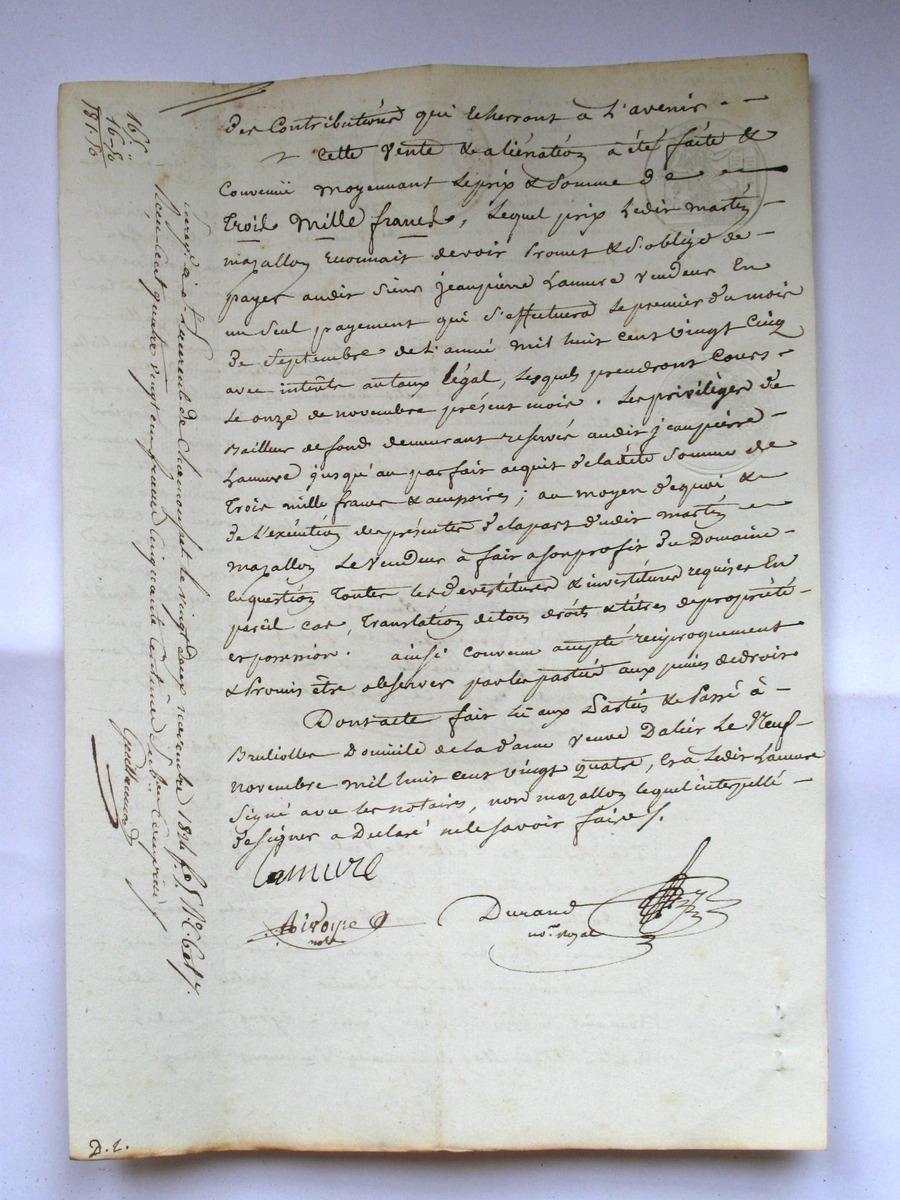 des Contributions qui echerront à l'avenir. —
Cette vente & aliénation a été faite &
Convenue moyennant le prix & Somme de
trois mille francs, lequel prix ledit martin
mazallon reconnait devoir Promet & S'oblige de
payer audit Sieur jeanpierre Lamure vendeur En
un Seul payement qui S'effectuera le premier du mois
de Septembre de l'année mil huit cent vingt cinq
avec intérêts au taux légal, lesquels prendront Cours
le onze de novembre présent mois. Les privilèges de
Bailleur de fond demeurant reservés audit jeanpierre
Lamure jusqu'au parfait acquit de ladite Somme de
trois mille francs & accessoires; au moyen de quoi &
de l'exécution des présentes de la part dudit martin
mazallon le vendeur a fait a son profit du Domaine
En question toutes les devestitures & investitures requises En
pareil cas, translation de tous droits & titres de propriété
et possession. ainsi convenu accepté réciproquement
& Promis être observer par les parties aux peines de droit
Dont acte fait lu aux Parties & Passé à
Brullioles Domicile de la dame veuve Dalier le Neuf
novembre mil huit cent vingt quatre, & a ledit Lamure
Signé avec les notaires, non mazallon lequel interpellé
de signer a Déclaré ne le savoir faire.
Lamure
notre
Durand
no.re royal
16f..
16-50
181-50
enregé à St Laurent de Chamousset le vingt deux novembre 1824 fo 5 Vo C. 6 et 7.
Reçu cent quatre vingt un francs cinquante centimes Dixme compris
Guillermond
D. L.